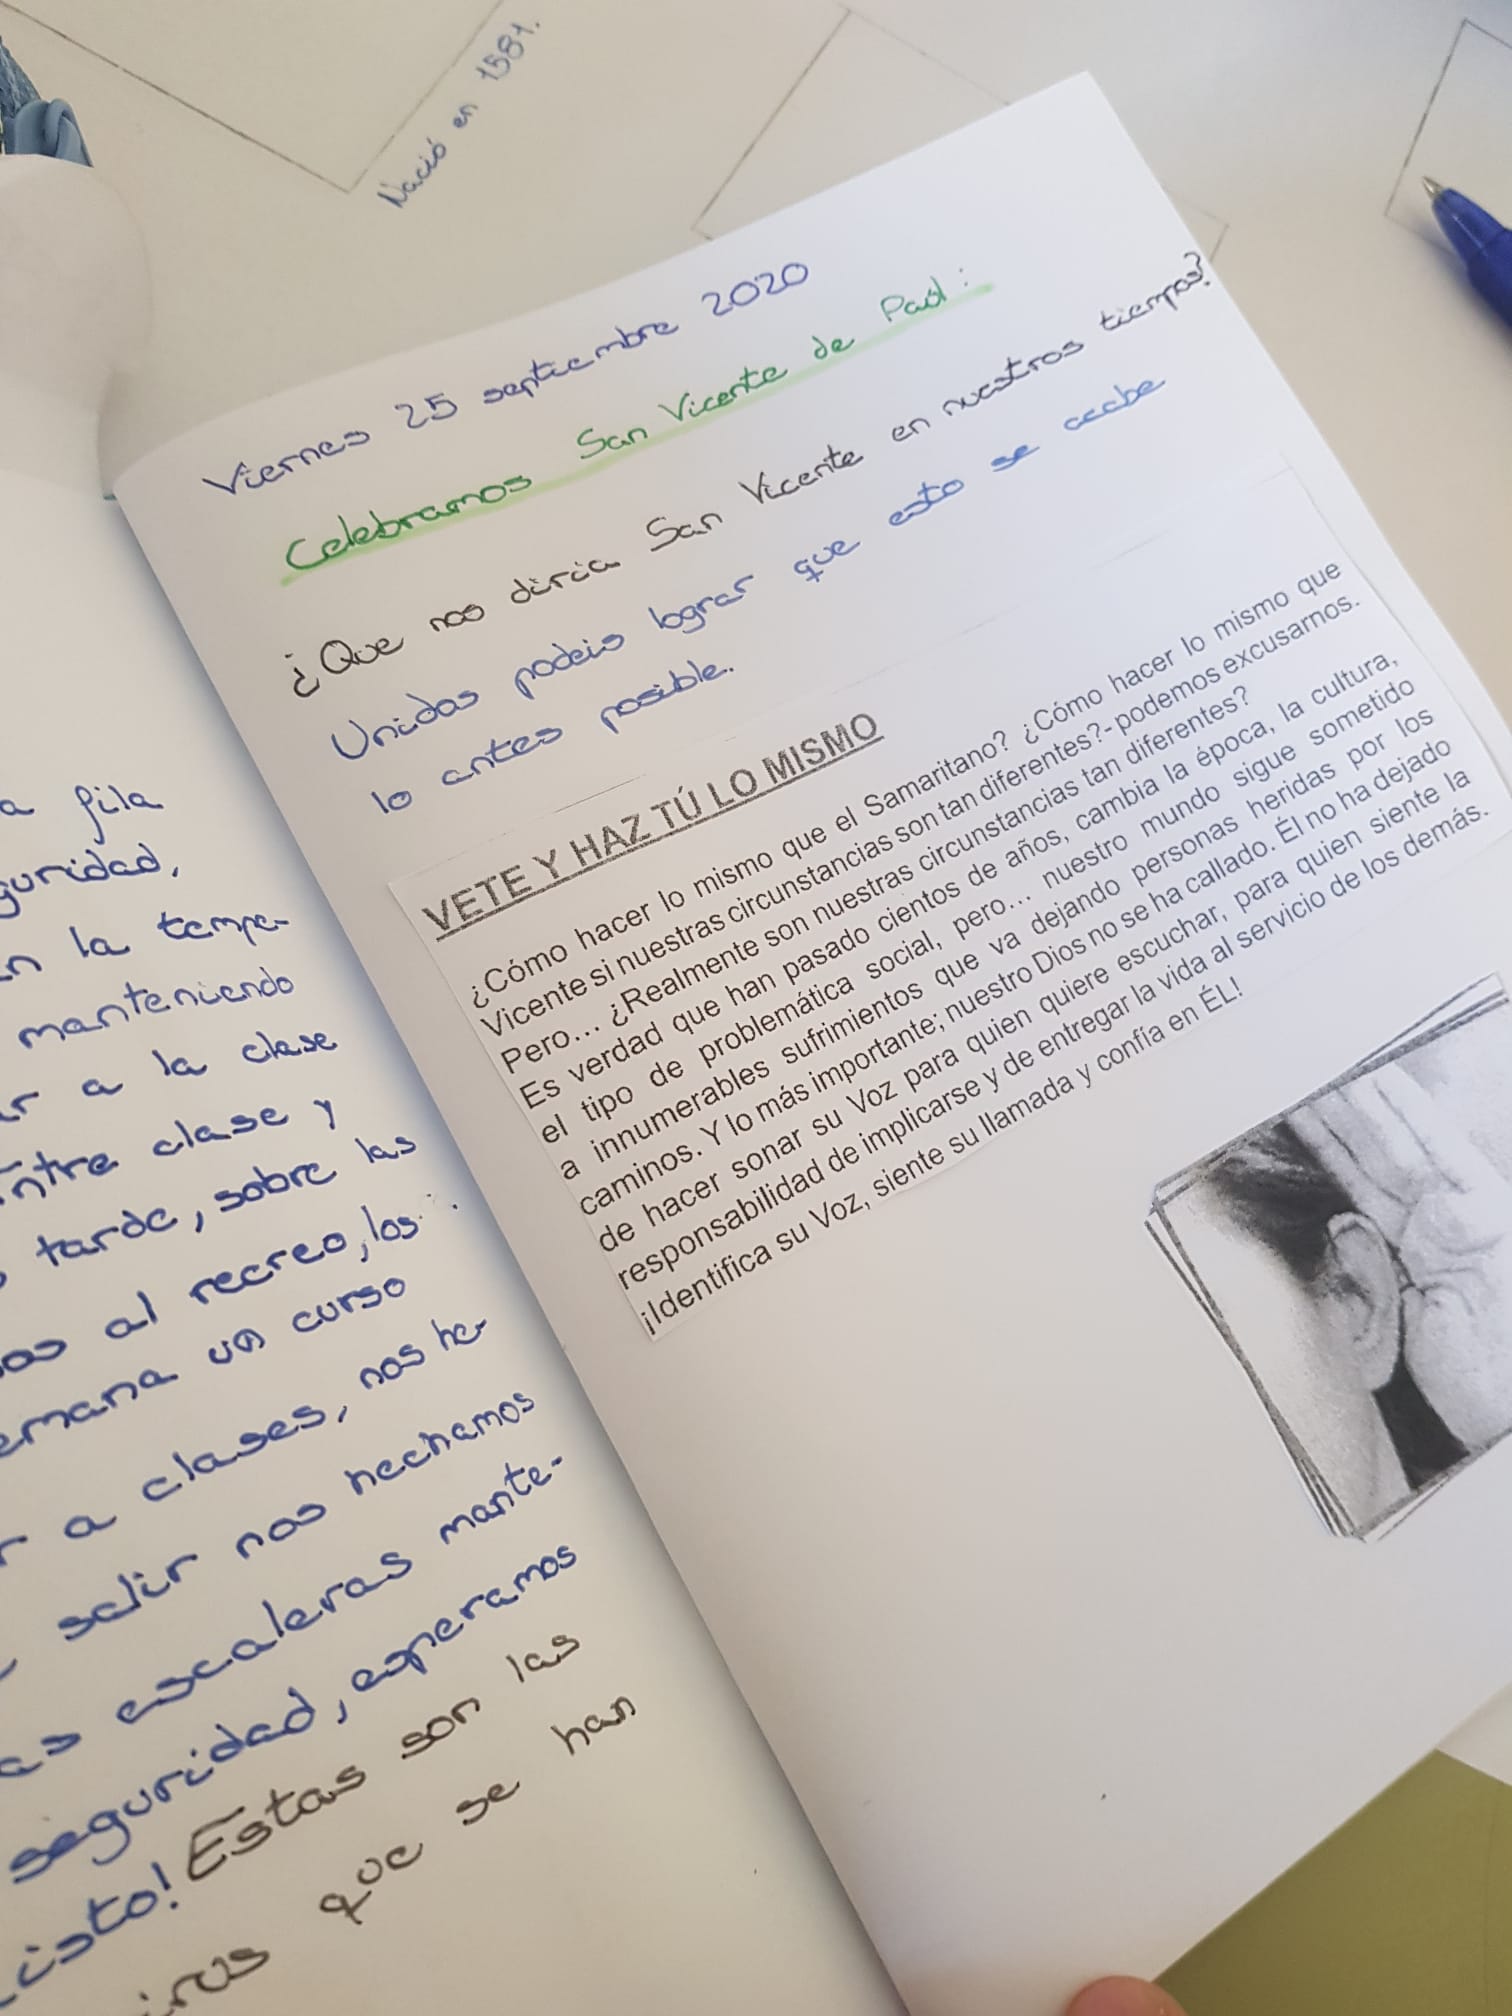 Nació en 1581.
Viernes 25 septiembre 2020
Celebramos San Vicente de Paúl:
¿Que nos diria San Vicente en nuestros tiempos?
Unidos podeis lograr que esto se acabe
lo antes posible.
VETE Y HAZ TÚ LO MISMO
¿Cómo hacer lo mismo que el Samaritano? ¿Cómo hacer lo mismo que
Vicente si nuestras circunstancias son tan diferentes?- podemos excusarnos.
Pero... ¿Realmente son nuestras circunstancias tan diferentes?
Es verdad que han pasado cientos de años, cambia la época, la cultura,
el tipo de problemática social, pero... nuestro mundo sigue sometido
a innumerables sufrimientos que va dejando personas heridas por los
caminos. Y lo más importante; nuestro Dios no se ha callado. Él no ha dejado
de hacer sonar su Voz para quien quiere escuchar, para quien siente la
responsabilidad de implicarse y de entregar la vida al servicio de los demás.
¡Identifica su Voz, siente su llamada y confía en ÉL!
a fila
guridad,
n la tempe-
manteniendo
ar a la clase
entre clase y
tarde, sobre las
os al recreo, los
emana un curso
r a clases, nos he-
salir nos hechamos
as escaleras mante-
seguridad, esperamos
isto! Estas son las
que se han